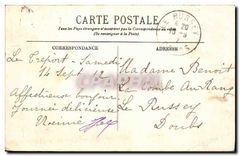 CARTE POSTALE
Tous les Pays étrangers n'acceptent pas la Correspondance au recto
(Se renseigner à la Poste)
CORRESPONDANCE
ADRESSE
Le Tréport - Samedi
14 Sept
Affectueux bonjour
journée délicieuse
Noémie
Madame Benoit
La Combe au Rang
Le Russey
Doubs